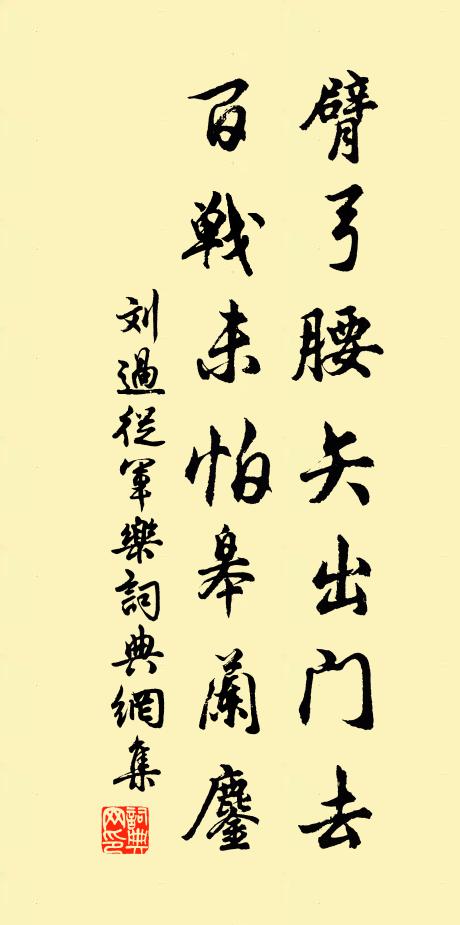 臂弓腰矢出门去
百戦未怕皋蘭鏖
刘過從軍樂詞典網集
詞典
网印